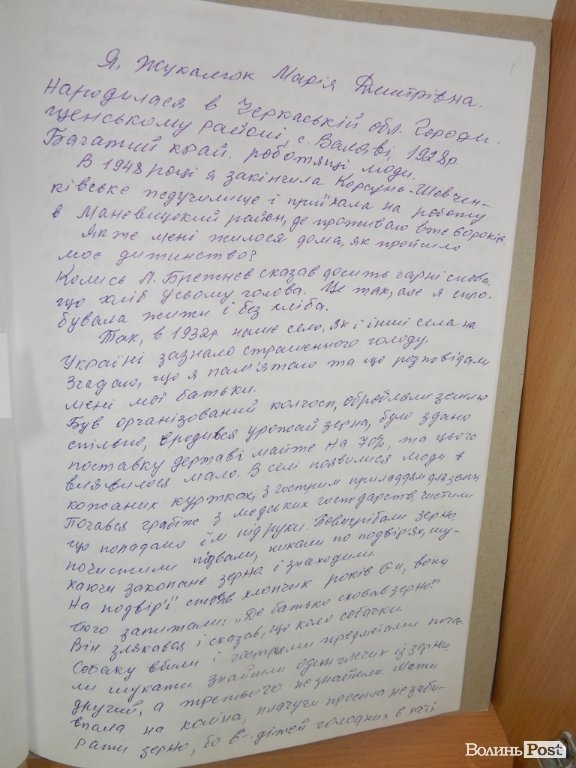 Я, Жукалюк Марія Дмитрівна.
народилася в Черкаській обл. Городи-
щенському районі, с. Валяві, 1928р
Багатий край, роботящі люди.
В 1948 році я закінчила Корсунь-Шевчен-
ківське педучилище і приїхала на роботу
в Маневицький район, де проживаю вже 60 років.
Як же мені жилося дома, як пройшло
моє дитинство?
Колись Л. Брежнєв сказав досить гарні слова,
що хліб усьому голова. Це так, але я спро-
бувала жити і без хліба.
Так, в 1932р наше село, як і інші села на
Україні зазнало страшенного голоду.
Згадаю, що я пам'ятаю та що розповідали
мені мої батьки.
Був організований колгосп, обробляли землю
спільно, вродився урожай зерна, було здано
поставку державі майже на 70%, та цього
виявилося мало. В селі появилися люди в
кожаних куртках, з гострим приладдям для
Почався грабіж з людських господарств, чистили
що попадало їм під руки. Повигрібали зерно,
почистили підвали, никали по подвір'ях, шу-
каючи закопане зерно і знаходили.
На подвір'ї стояв хлопчик років 6-и, вони
його запитали: "Де батько сховав зерно?"
Він злякався і сказав, що коло собачки.
Собаку вбили і гострими предметами поча-
ли шукати. Знайшли один із зерном
другий, а третього не знайшли. Мати
впала на коліна, плачучи просила не заби-
рати зерно, бо в дітей голодних в хаті
ВолиньPost